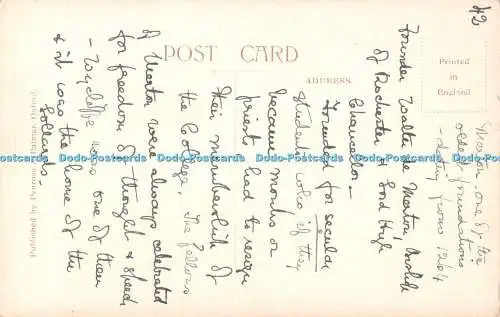 42
POST CARD
ADDRESS.
Printed
in
England
Merton - one of the
oldest foundations
- dating from 1264
Founder Walter de Merton, Bishop
of Rochester & Lord High
Chancellor -
Founded for secular
students who if they
became monks or
priests had to resign
their membership of
the College. The fellows
of Merton were always celebrated
for freedom of thought & speech
- Wycliffe was one of them
& it was the home of the
Lollards
Oxford.
Dodo-Postcards Dodo-Postcards Dodo-Postcards Dodo-Postcards Dodo-Postcards Dodo-Postcards Dodo-Postcards